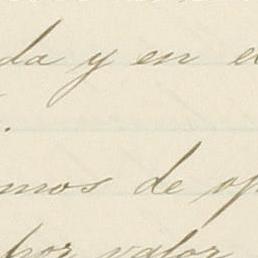 da y en e
mos de op
por valor